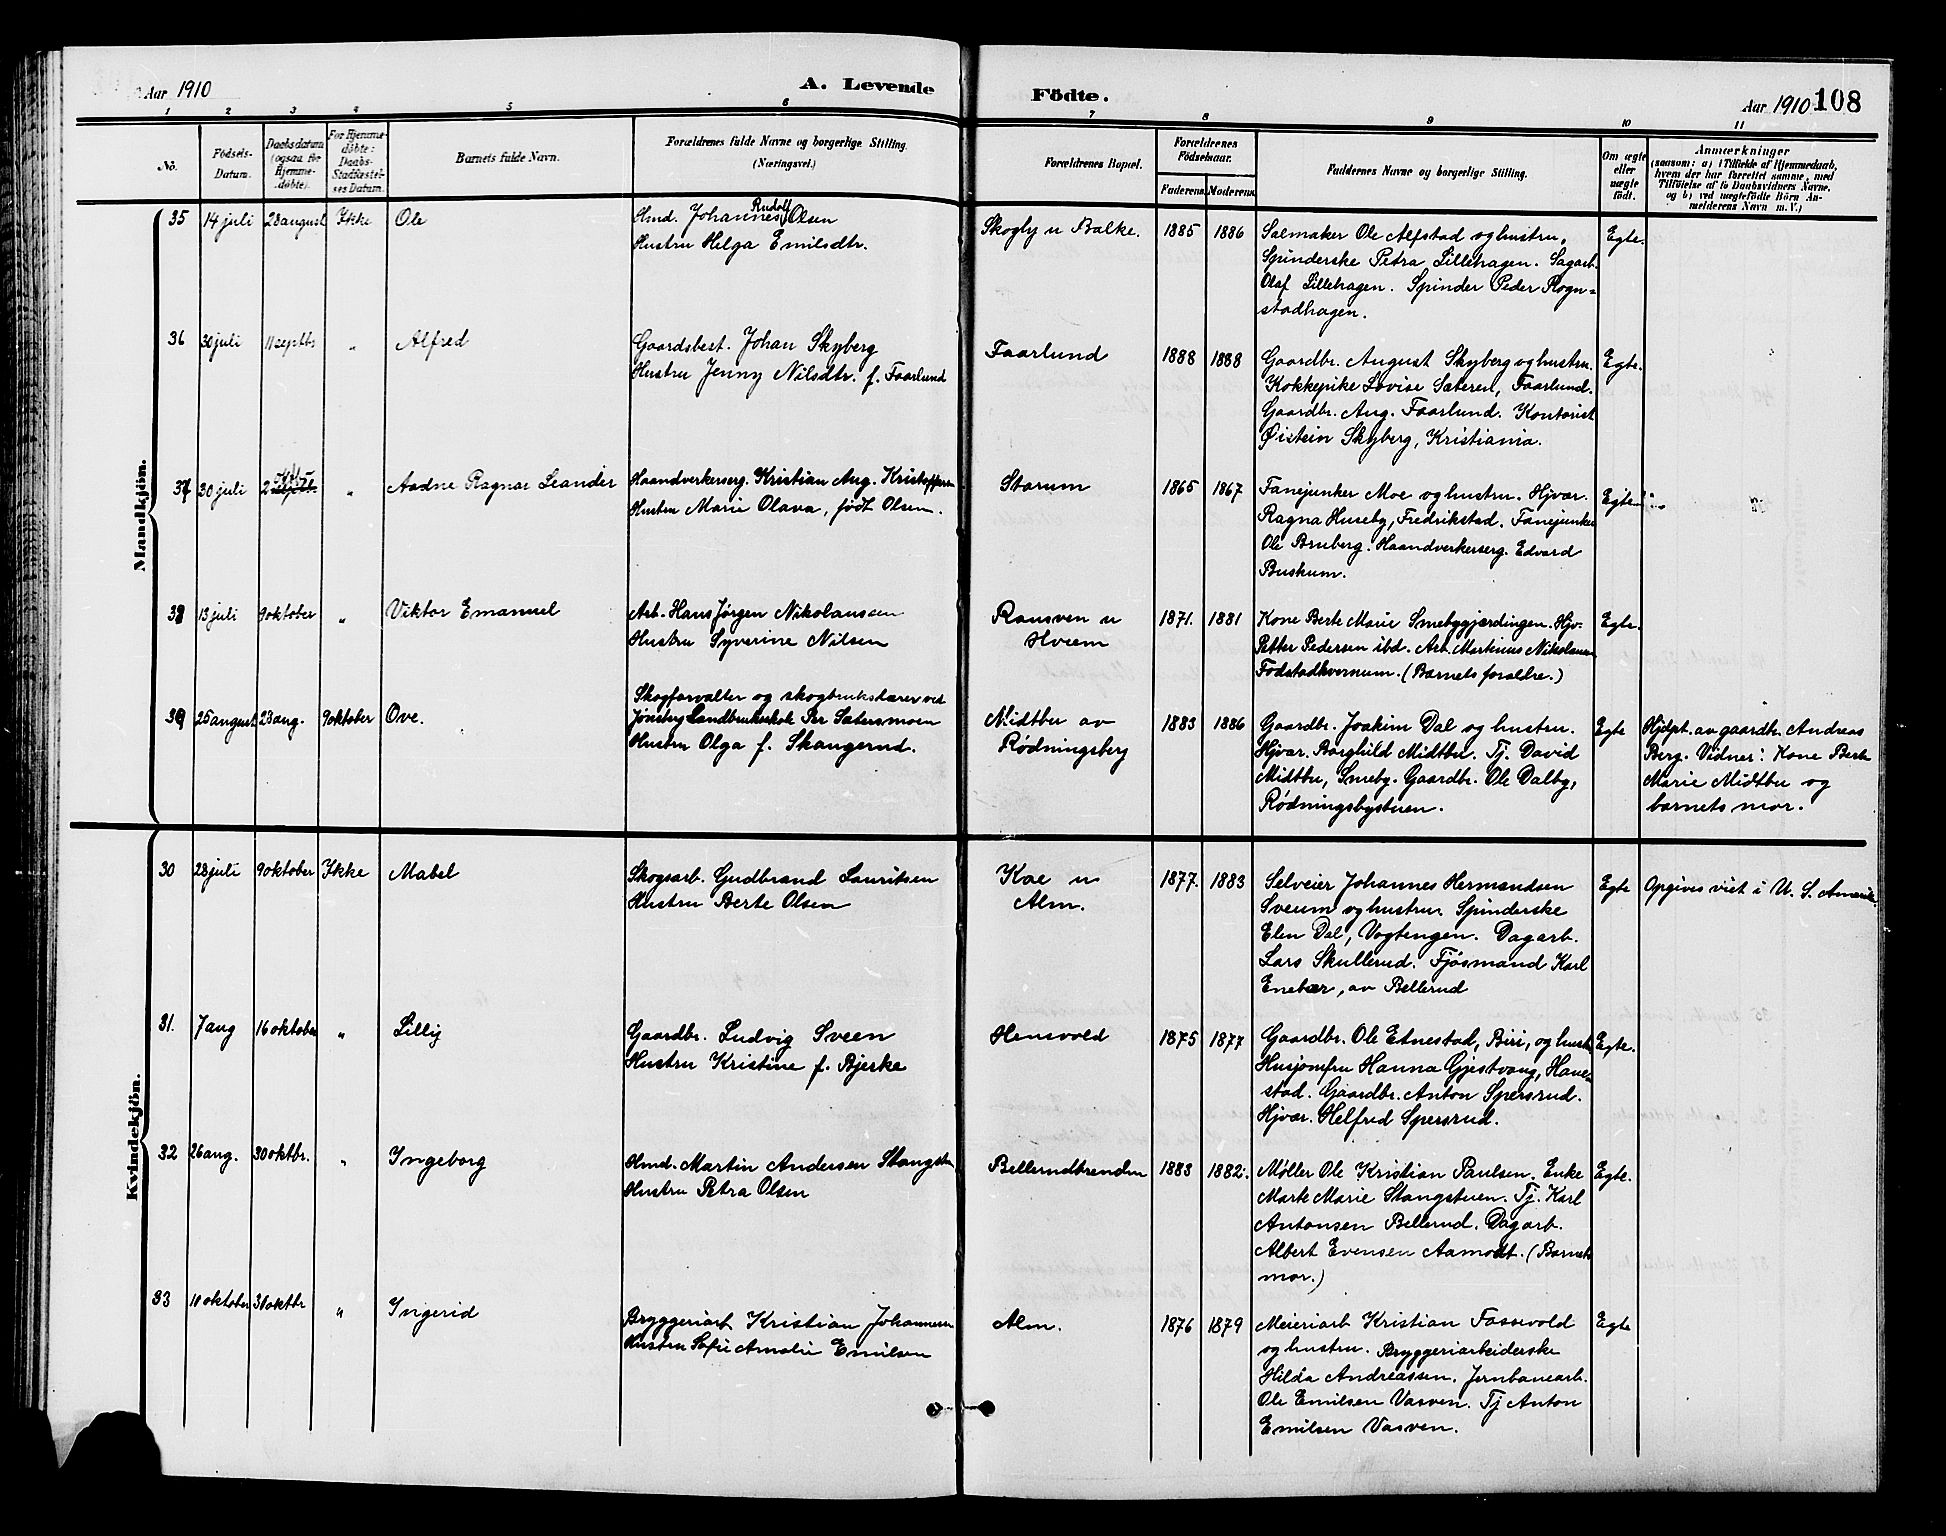 Aar 1910
A. Levende Födte.
Aar 1910 108
1 2 3 4 5 6 7 8 9 10 11
No.
Födsels-
Datum.
Daabsdatum
(ogsaa for
Hjemme-
döbte).
For Hjemme-
döbte:
Daabs-
Stadfæstel-
ses Datum.
Barnets fulde Navn.
Forældrenes fulde Navne og borgerlige Stilling.
(Næringsvei.)
Forældrenes Bopæl.
Forældrenes
Födselsaar.
Faderens. Moderens.
Faddernes Navne og borgerlige Stilling.
Om ægte
eller
uægte
födt.
Anmærkninger
(saasom: a) i Tilfælde af Hjemmedaab,
hvem der har forrettet samme, med
Tilföielse af to Daabsvidners Navne,
og b) ved uægtefödte Börn An-
melderens Navn m. V.)
Mandkjön.
35 14 juli 28 august Ikke Ole
Hmd. Johannes Rudolf Olsen
Hustru Helga Emilsdtr.
Skogly u Balke. 1885 1886
Salmaker Ole Alfstad og hustru,
Spinderske Petra Lillehagen. Sagarb.
Olaf Lillehagen. Spinder Peder Rogn-
stadhagen.
Egte.
36 30 juli 11 septbr " Alfred
Gaardsbest. Johan Skyberg
Hustru Jenny Nilsdtr. f. Faarlund
Faarlund 1888 1888
Gaardbr. August Skyberg og hustru.
Kokkepike Lovise Sæteren, Faarlund.
Gaardbr. Aug. Faarlund. Kontorist
Øistein Skyberg, Kristiania.
Egte.
37 30 juli 2 " Aadne Ragnar Leander
Haandverkerserg. Kristian Aug. Kristoffersen
Hustru Marie Olava, født Olsen.
Starum 1865 1867
Fanejunker Moe og hustru. Hjvær.
Ragna Huseby, Fredrikstad. Fanejunker
Ole Bruberg. Haandverkerserg. Edvard
Buskum.
Egte
38 13 juli 9 oktober " Viktor Emanuel
Arb. Hans Jørgen Nikolaussen
Hustru Syverine Nilsen
Rønsven u
Hveem
1871. 1881
Kone Berte Marie Smebygjerdingen. Hjv.
Petter Pedersen ibd. Arb. Martinius Nikolausen
Fodstadkvernum. (Barnets forældre.)
Egte.
39 25 august 28 ang. 9 oktober Ove.
Skogforvalter og skogbrukslærer ved
Jønsberg Landbrukskole Per Sætersmoen
Hustru Olga f. Skangerud.
Midtbu av
Rødningsberg
1883 1886
Gaardbr. Joakim Dal og hustru.
Hjvær. Borghild Midtbu. Tj. David
Midtbu, Smeby. Gaardbr. Ole Dalby,
Rødningsbystuen.
Egte
Hjdpt. av gaardbr. Andreas
Berg. Vidner: Kone Berte
Marie Midtbu og
barnets mor.
Kvindekjön.
30 28 juli 9 oktober Ikke Mabel
Skogsarb. Gudbrand Lauritsen
Hustru Berte Olsen
Koe u
Alm.
1877. 1883
Selveier Johannes Hermandsen
Sveum og hustru. Spinderske
Elen Dal, Vogtengen. Dagarb.
Lars Skullerud. Fjøsmand Karl
Enebær, av Bellerud
Egte
Opgives viet i U. S. Amerika.
31. 7 aug 16 oktober " Lilly
Gaardbr. Ludvig Sveen
Hustru Kristine f. Bjerke
Hensvold 1875 1877
Gaardbr. Ole Etnestad, Biri, og hustru
Husjomfru Hanna Gjestvang, Hane-
stad. Gaardbr. Anton Spersrud.
Hjvær. Helfred Spersrud.
Egte.
32 26 aug. 30 oktbr. " Ingeborg
Hmd. Martin Andersen Stangstu
Hustru Petra Olsen
Bellerudbrenden 1883 1882.
Møller Ole Kristian Paulsen. Enke
Marte Marie Stangstuen. Tj. Karl
Antonsen Bellerud. Dagarb.
Albert Evensen Aamodt. (Barnets
mor.)
Egte.
33 10 oktober 30 oktbr " Ingerid
Bryggeriarb Kristian Johannesen
Hustru Sofie Amalie Emilsen
Alm. 1876 1879
Meieriarb Kristian Fossvold
og hustru. Bryggeriarbeiderske
Hilda Andreassen. Jernbanearb.
Ole Emilsen Vasven. Tj Anton
Emilsen Vasven.
Egte